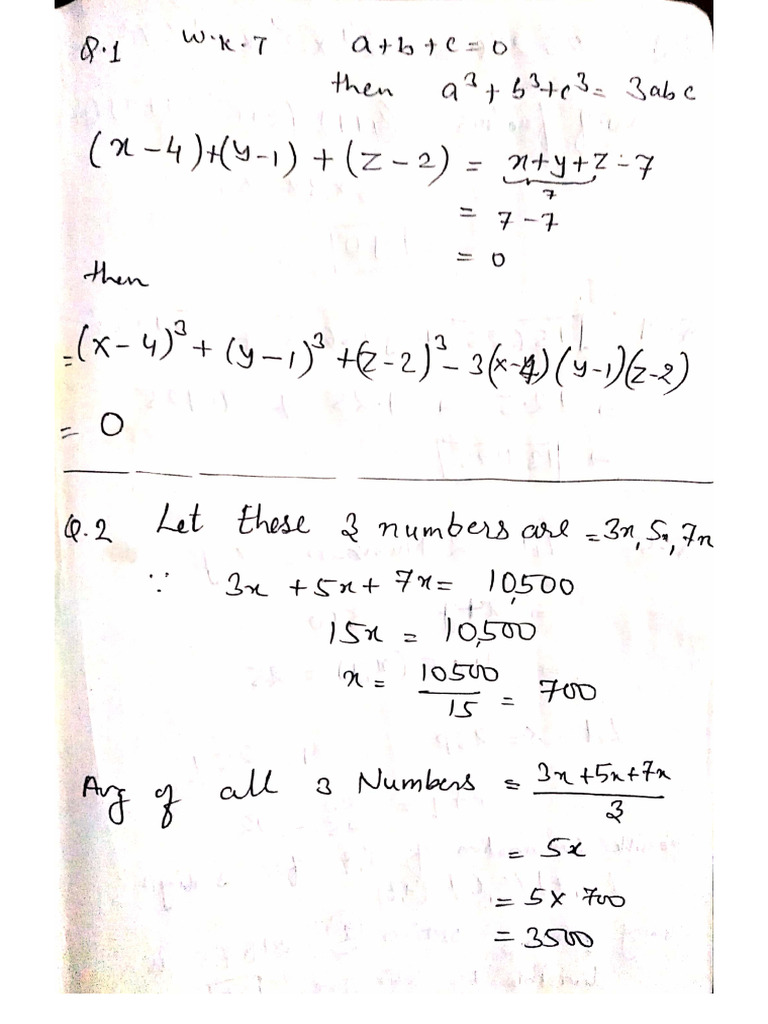 Q.1 W.K.T a+b+c=0
then a³+b³+c³= 3abc
(x-4)+(y-1)+(z-2) = x+y+z-7
7
= 7-7
= 0
then
=(x-4)³+(y-1)³+(z-2)³-3(x-4)(y-1)(z-2)
= 0
Q.2 Let these 3 numbers are =3x,5x,7x
∵ 3x+5x+7x= 10,500
15x = 10,500
x = 10500/15 = 700
Avg of all 3 Numbers = 3x+5x+7x/3
= 5x
= 5x 700
= 3500